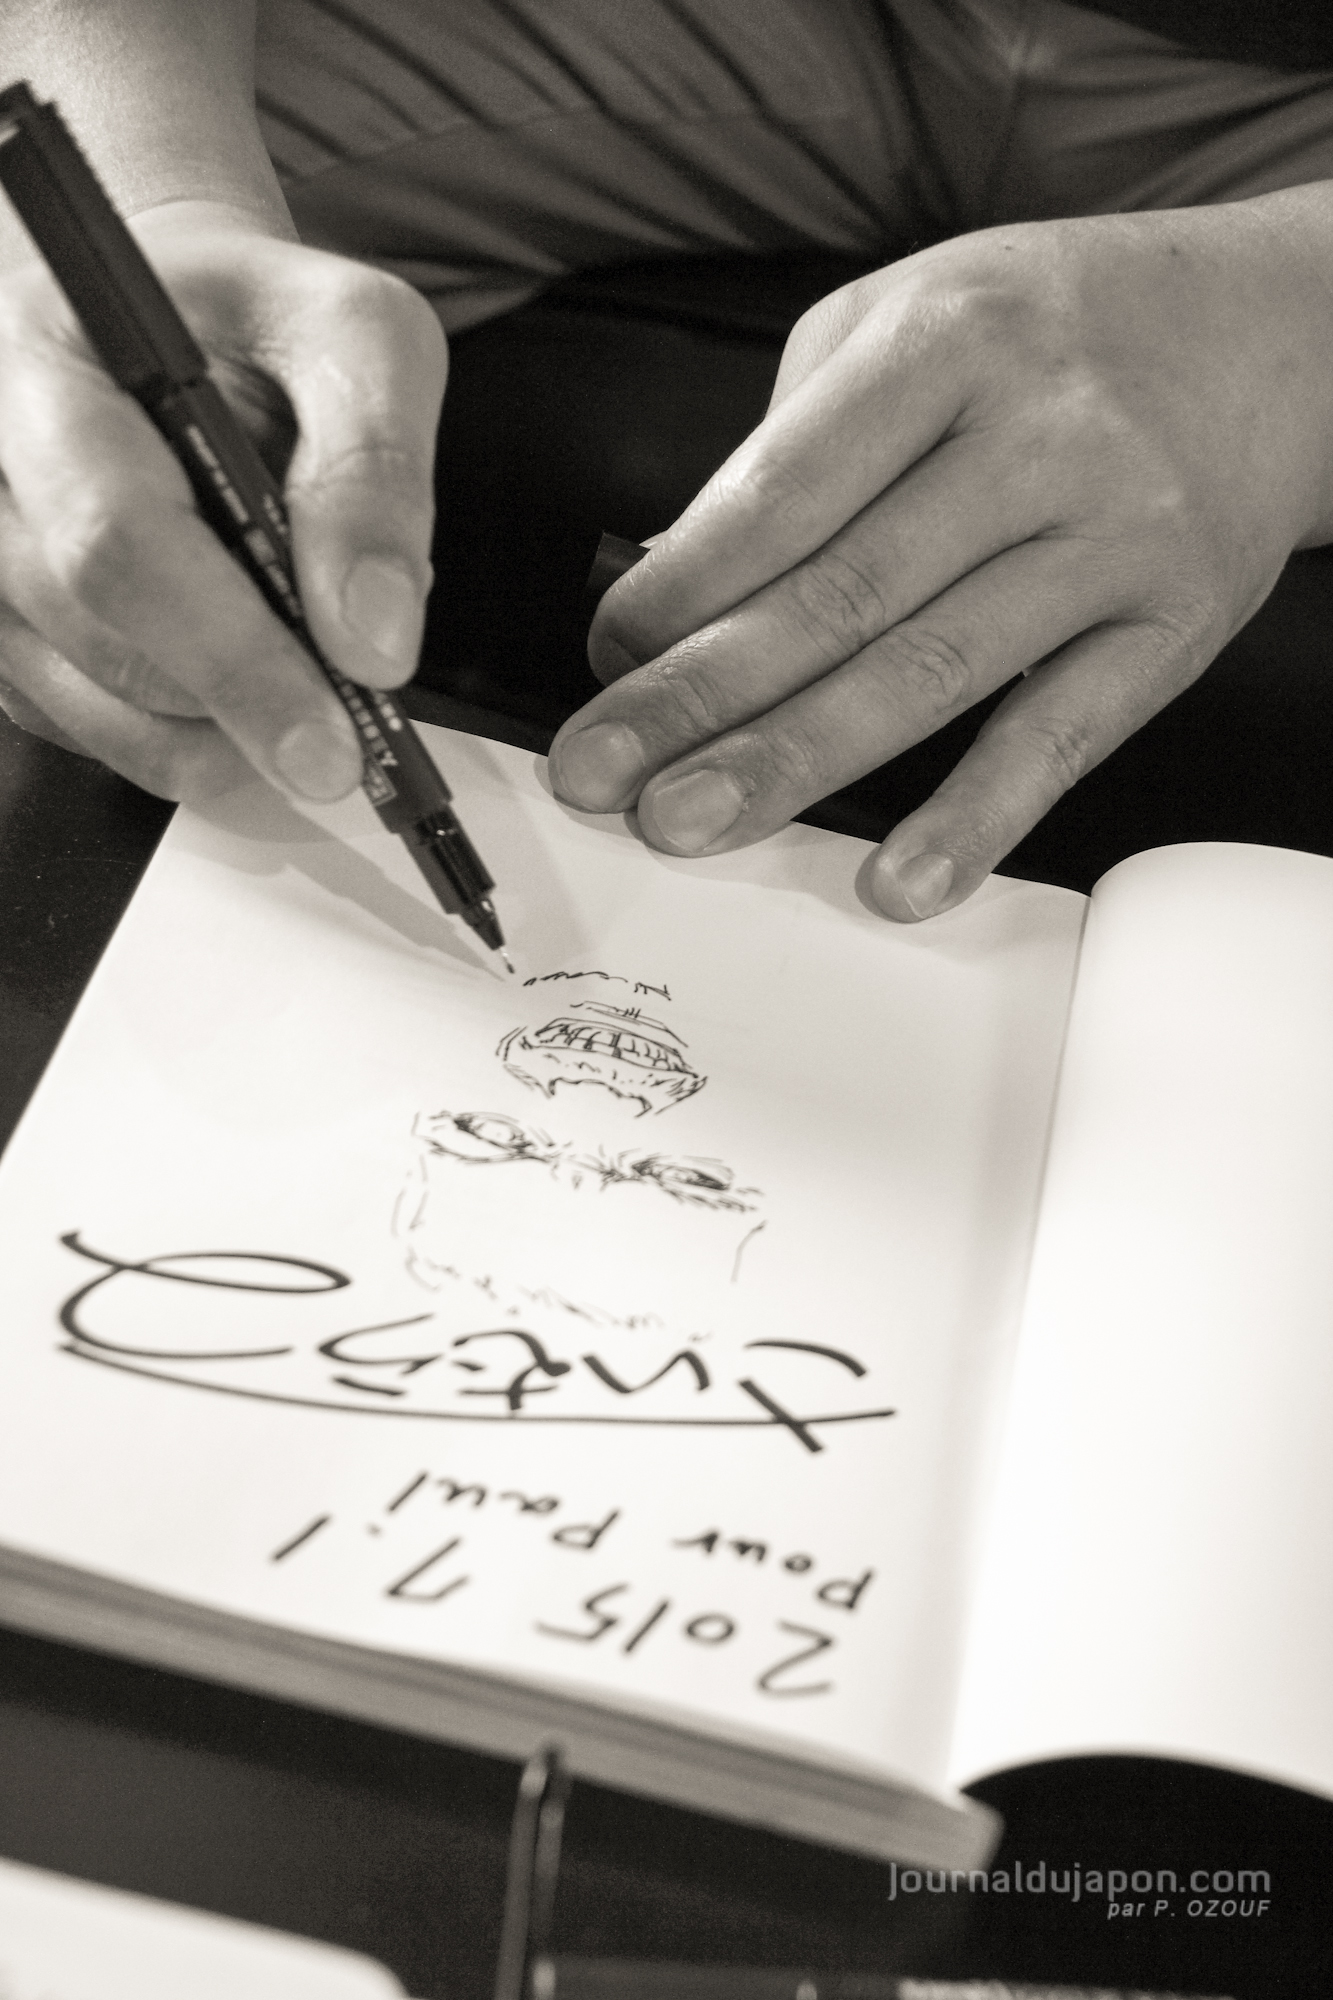 2015 7.1
Pour Paul
Journaldujapon.com
par P. OZOUF